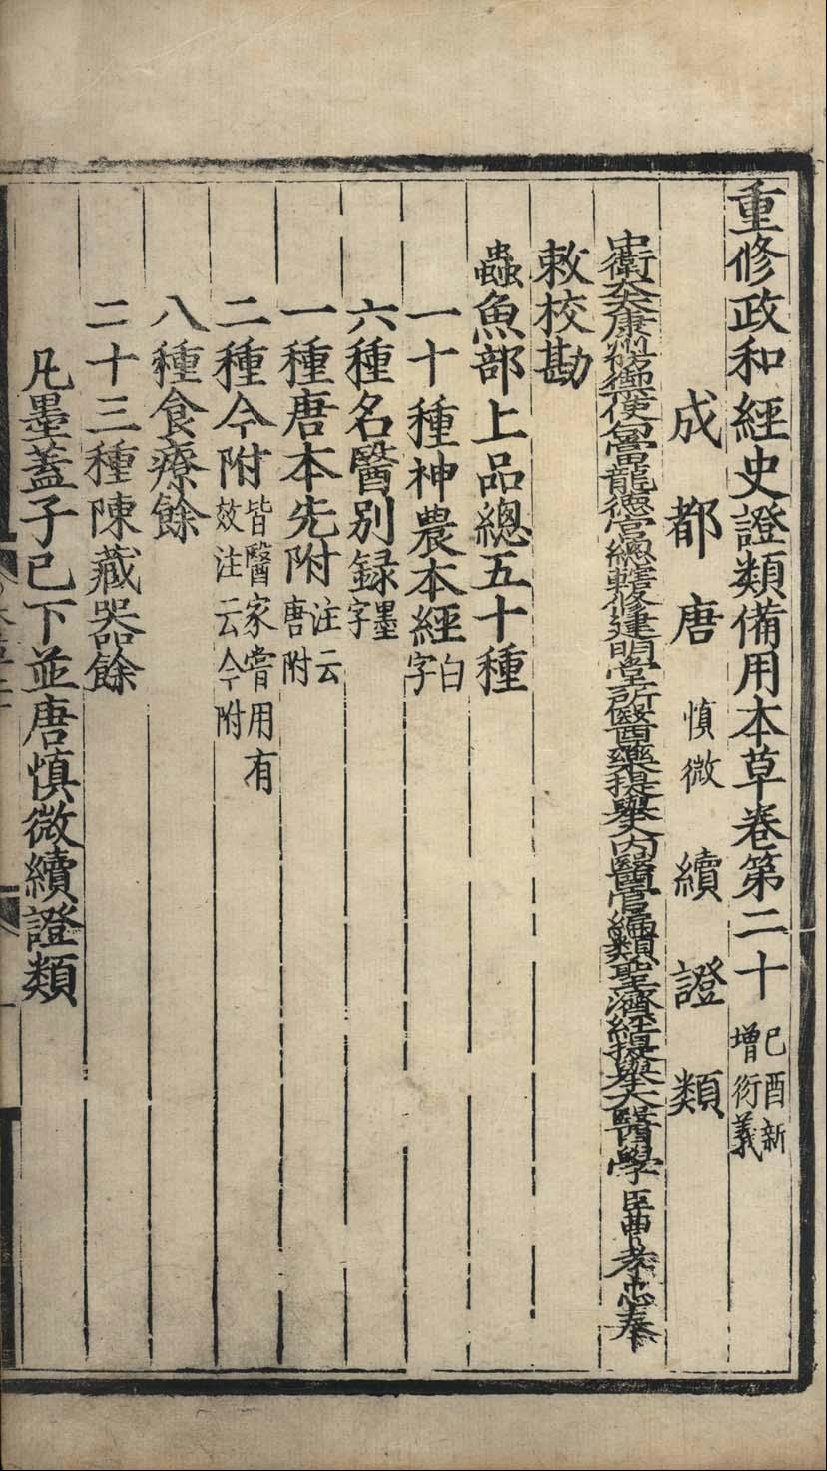 重修政和經史證類備用本草卷第二十己酉新增衍義
成都唐慎微續證類
中衛大夫康州防禦使句當龍德宮總轄修建明堂所醫藥提舉入內醫官編類聖濟經提舉太醫學臣曹孝忠奉
敕校勘
蟲魚部上品總五十種
一十種神農本經白字
六種名醫別録墨字
一種唐本先附注云唐附
二種今附皆醫家嘗用有效注云今附
八種食療餘
二十三種陳藏器餘
凡墨蓋子已下並唐慎微續證類